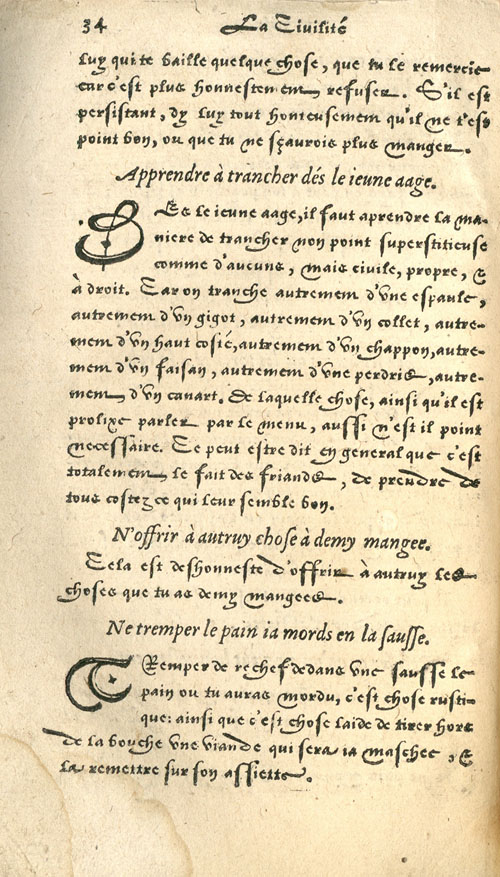 34 La Civilité
luy qui te baille quelque chose, que tu le remercie
car c'est plus honnestement refuser. S'il est
persistant, dy luy tout honteusement qu'il ne t'est
point bon, ou que tu ne sçaurois plus manger.
Apprendre à trancher dés le ieune aage.
DEs le ieune aage, il faut aprendre la ma-
niere de trancher non point superstitieuse
comme d'aucuns, mais civile, propre, &
à droit. Car on tranche autrement d'une espaule,
autrement d'vn gigot, autrement d'vn collet, autre-
ment d'vn haut costé, autrement d'vn chappon, autre-
ment d'vn faisan, autrement d'vne perdris, autre-
ment d'vn canart. De laquelle chose, ainsi qu'il est
prolixe parler par le menu, aussi n'est il point
necessaire. Ce peut estre dit en general que c'est
totalement le fait des friands, de prendre de
tous costez ce qui leur semble bon.
N'offrir à autruy chose à demy mangee.
Cela est deshonneste d'offrir à autruy les
choses que tu as demy mangees.
Ne tremper le pain ia mords en la sausse.
TRemper de rechef dedans vne sausse le
pain ou tu auras mordu, c'est chose rusti-
que: ainsi que c'est chose laide de tirer hors
de la bouche vne viande qui sera ia maschee, &
la remettre sur son assiette.